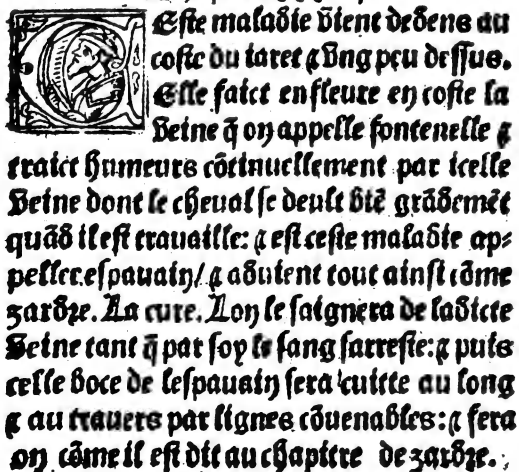 CEste maladie vient dedens au
coste du iaret ⁊ vng peu dessus.
Elle faict enfleure en coste la
veine q̄ on appelle fontenelle ⁊
traict humeurs cōtinuellement par icelle
veine dont le cheual se deult biē grādemēt
quād il est trauaille: ⁊ est ceste maladie ap⸗
pellee.espauain/ ⁊ aduient tout ainsi cōme
zardre. La cure. Lon le saignera de ladicte
veine tant q̄ par soy le sang sarreste: ⁊ puis
celle boce de lespauain sera cuitte au long
⁊ au trauers par lignes cōuenables: ⁊ fera
on cōme il est dit au chapitre de zardre.